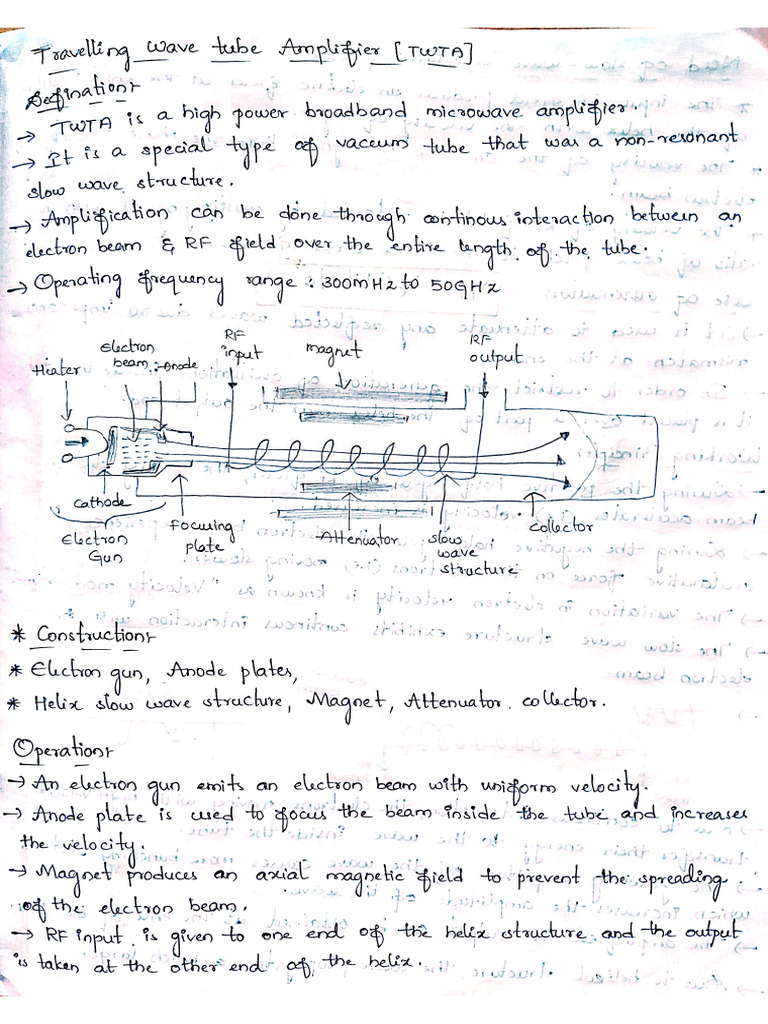 Travelling wave tube Amplifier [TWTA]
Defination:
→ TWTA is a high power broadband microwave amplifier.
→ It is a special type of vaccum tube that was a non-resonant
slow wave structure.
→ Amplification can be done through continous interaction between an
electron beam & RF field over the entire length of the tube.
→ Operating frequency range : 300mHz to 50GHz
Heater
Electron
beam
Anode
RF
input
magnet
RF
output
Cathode
Electron
Gun
Focusing
plate
Attenuator
slow
wave
structure
Collector
* Construction:
* Electron gun, Anode plates,
* Helix slow wave structure, Magnet, Attenuator. collector.
Operation:
→ An electron gun emits an electron beam with uniform velocity.
→ Anode plate is used to focus the beam inside the tube and increases
the velocity.
→ Magnet produces an axial magnetic field to prevent the spreading
of the electron beam.
→ RF input is given to one end of the helix structure and the output
is taken at the other end of the helix.